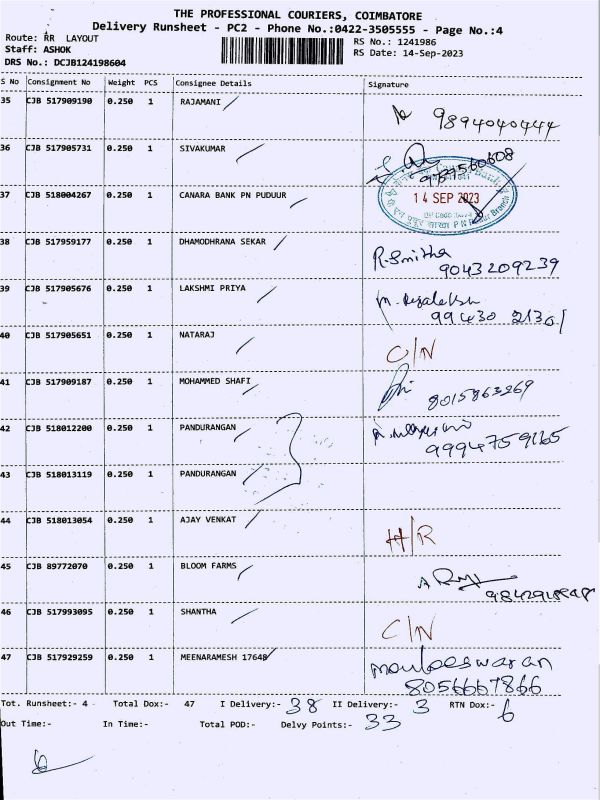 THE PROFESSIONAL COURIERS, COIMBATORE
Delivery Runsheet - PC2 - Phone No.:0422-3505555 - Page No.:4
Route: RR LAYOUT
RS No.: 1241986
Staff: ASHOK
RS Date: 14-Sep-2023
DRS No.: DCJB124198604
S No Consignment No Weight PCS Consignee Details Signature
35 CJB 517909190 0.250 1 RAJAMANI
9894040444
36 CJB 517905731 0.250 1 SIVAKUMAR
37 CJB 518004267 0.250 1 CANARA BANK PN PUDUUR
14 SEP 2023
38 CJB 517959177 0.250 1 DHAMODHRANA SEKAR
R. Smitha
9043209239
39 CJB 517905676 0.250 1 LAKSHMI PRIYA
99430 21301
40 CJB 517905651 0.250 1 NATARAJ
C/N
41 CJB 517909187 0.250 1 MOHAMMED SHAFI
8015863269
42 CJB 518012200 0.250 1 PANDURANGAN
9994759165
43 CJB 518013119 0.250 1 PANDURANGAN
44 CJB 518013054 0.250 1 AJAY VENKAT
H/R
45 CJB 89772070 0.250 1 BLOOM FARMS
46 CJB 517993095 0.250 1 SHANTHA
C/N
47 CJB 517929259 0.250 1 MEENARAMESH 17648
mouleeswaran
8056667866
Tot. Runsheet:- 4 Total Dox:- 47 I Delivery:- 38 II Delivery:- 3 RTN Dox:- 6
Out Time:- In Time:- Total POD:- Delvy Points:- 33